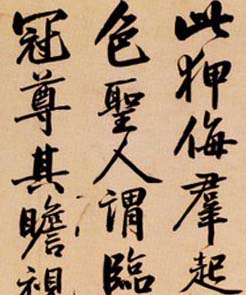 此狎侮羣起
色聖人謂臨
冠尊其瞻視